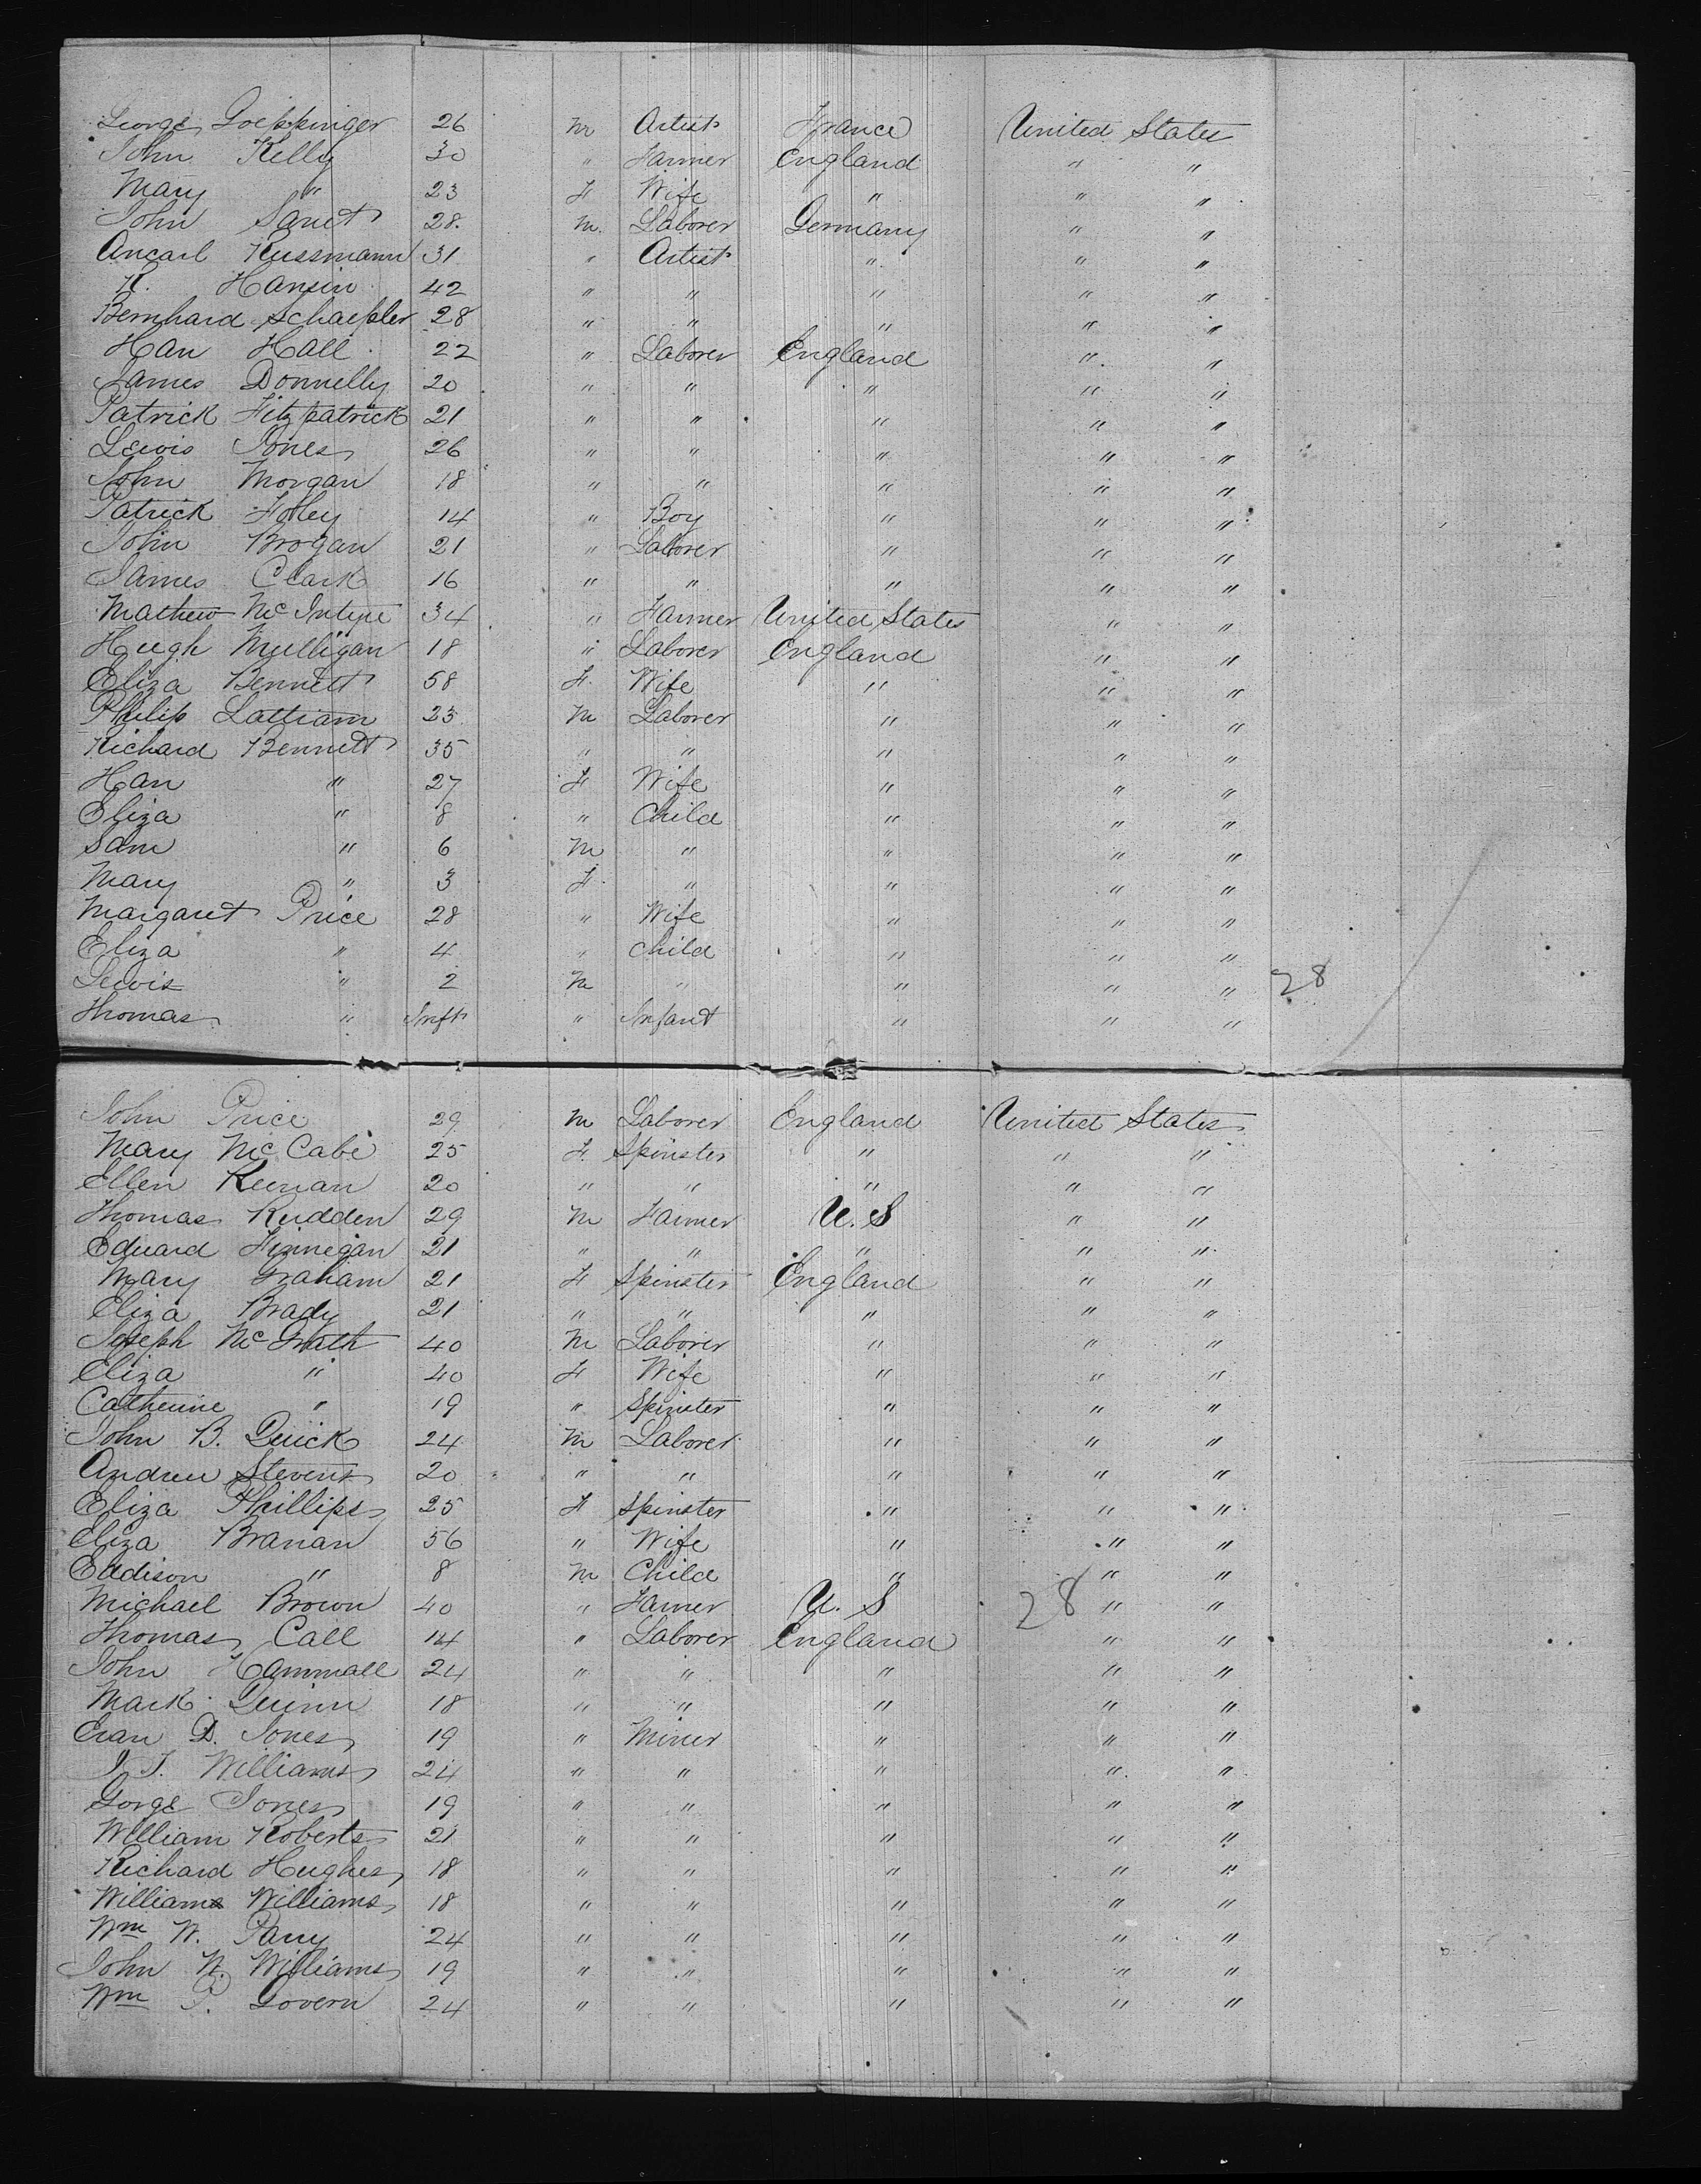 George Goeppinger 26 m Artist France United States
John Kelly 30 " Farmer England " "
Mary " 23 F Wife " " "
John Sanet 28. m. Laborer Germany " "
Ancarl Kussmann 31 " Artist " " "
K. Hansin 42 " " " " "
Bernhard Schaepler 28 " " " " "
Han Hall 22 " Laborer England " "
James Donnelly 20 " " " " "
Patrick Fitzpatrick 21 " " " " "
Lewis Jones 26 " " " " "
John Morgan 18 " " " " "
Patrick Folley 14 " Boy " " "
John Brogan 21 " Laborer " " "
James Clark 16 " " " " "
Mathew McIntyre 34 " Farmer United States " "
Hugh Mulligan 18 " Laborer England " "
Eliza Bennett 58 F. Wife " " "
Philip Lattiam 23 m Laborer " " "
Richard Bennett 35 " " " " "
Han " 27 F Wife " " "
Eliza " 8 " Child " " "
Sam " 6 m " " " "
Mary " 3 F " " " "
Margaret Price 28 " Wife " " "
Eliza " 4 " Child " " "
Lewis " 2 m " " " " 28
Thomas " Inft " Infant " " "
John Price 29 m Laborer England United States
Mary McCabe 25 F. Spinster " " "
Ellen Keenan 20 " " " " "
Thomas Rudden 29 m Farmer U.S " "
Eduard Finnegan 21 " " " " "
Mary Graham 21 F Spinster England " "
Eliza Brady 21 " " " " "
Joseph McGrath 40 m Laborer " " "
Eliza " 40 F Wife " " "
Catherine " 19 " Spinster " " "
John B. Quick 24 m Laborer " " "
Andrew Stevens 20 " " " " "
Eliza Phillips 25 F Spinster " " "
Eliza Branan 56 " Wife " " "
Eddison " 8 m Child " " "
Michael Brown 40 " Farmer U. S 28 " "
Thomas Call 14 " Laborer England " "
John Hammall 24 " " " " "
Mark Quinn 18 " " " " "
Evan D. Jones 19 " Miner " " "
J. J. Williams 24 " " " " "
Gorge Jones 19 " " " " "
William Roberts 21 " " " " "
Richard Hughes 18 " " " " "
Williams Williams 18 " " " " "
Wm W. Parry 24 " " " " "
John W. Williams 19 " " " " "
Wm P. Govern 24 " " " " "